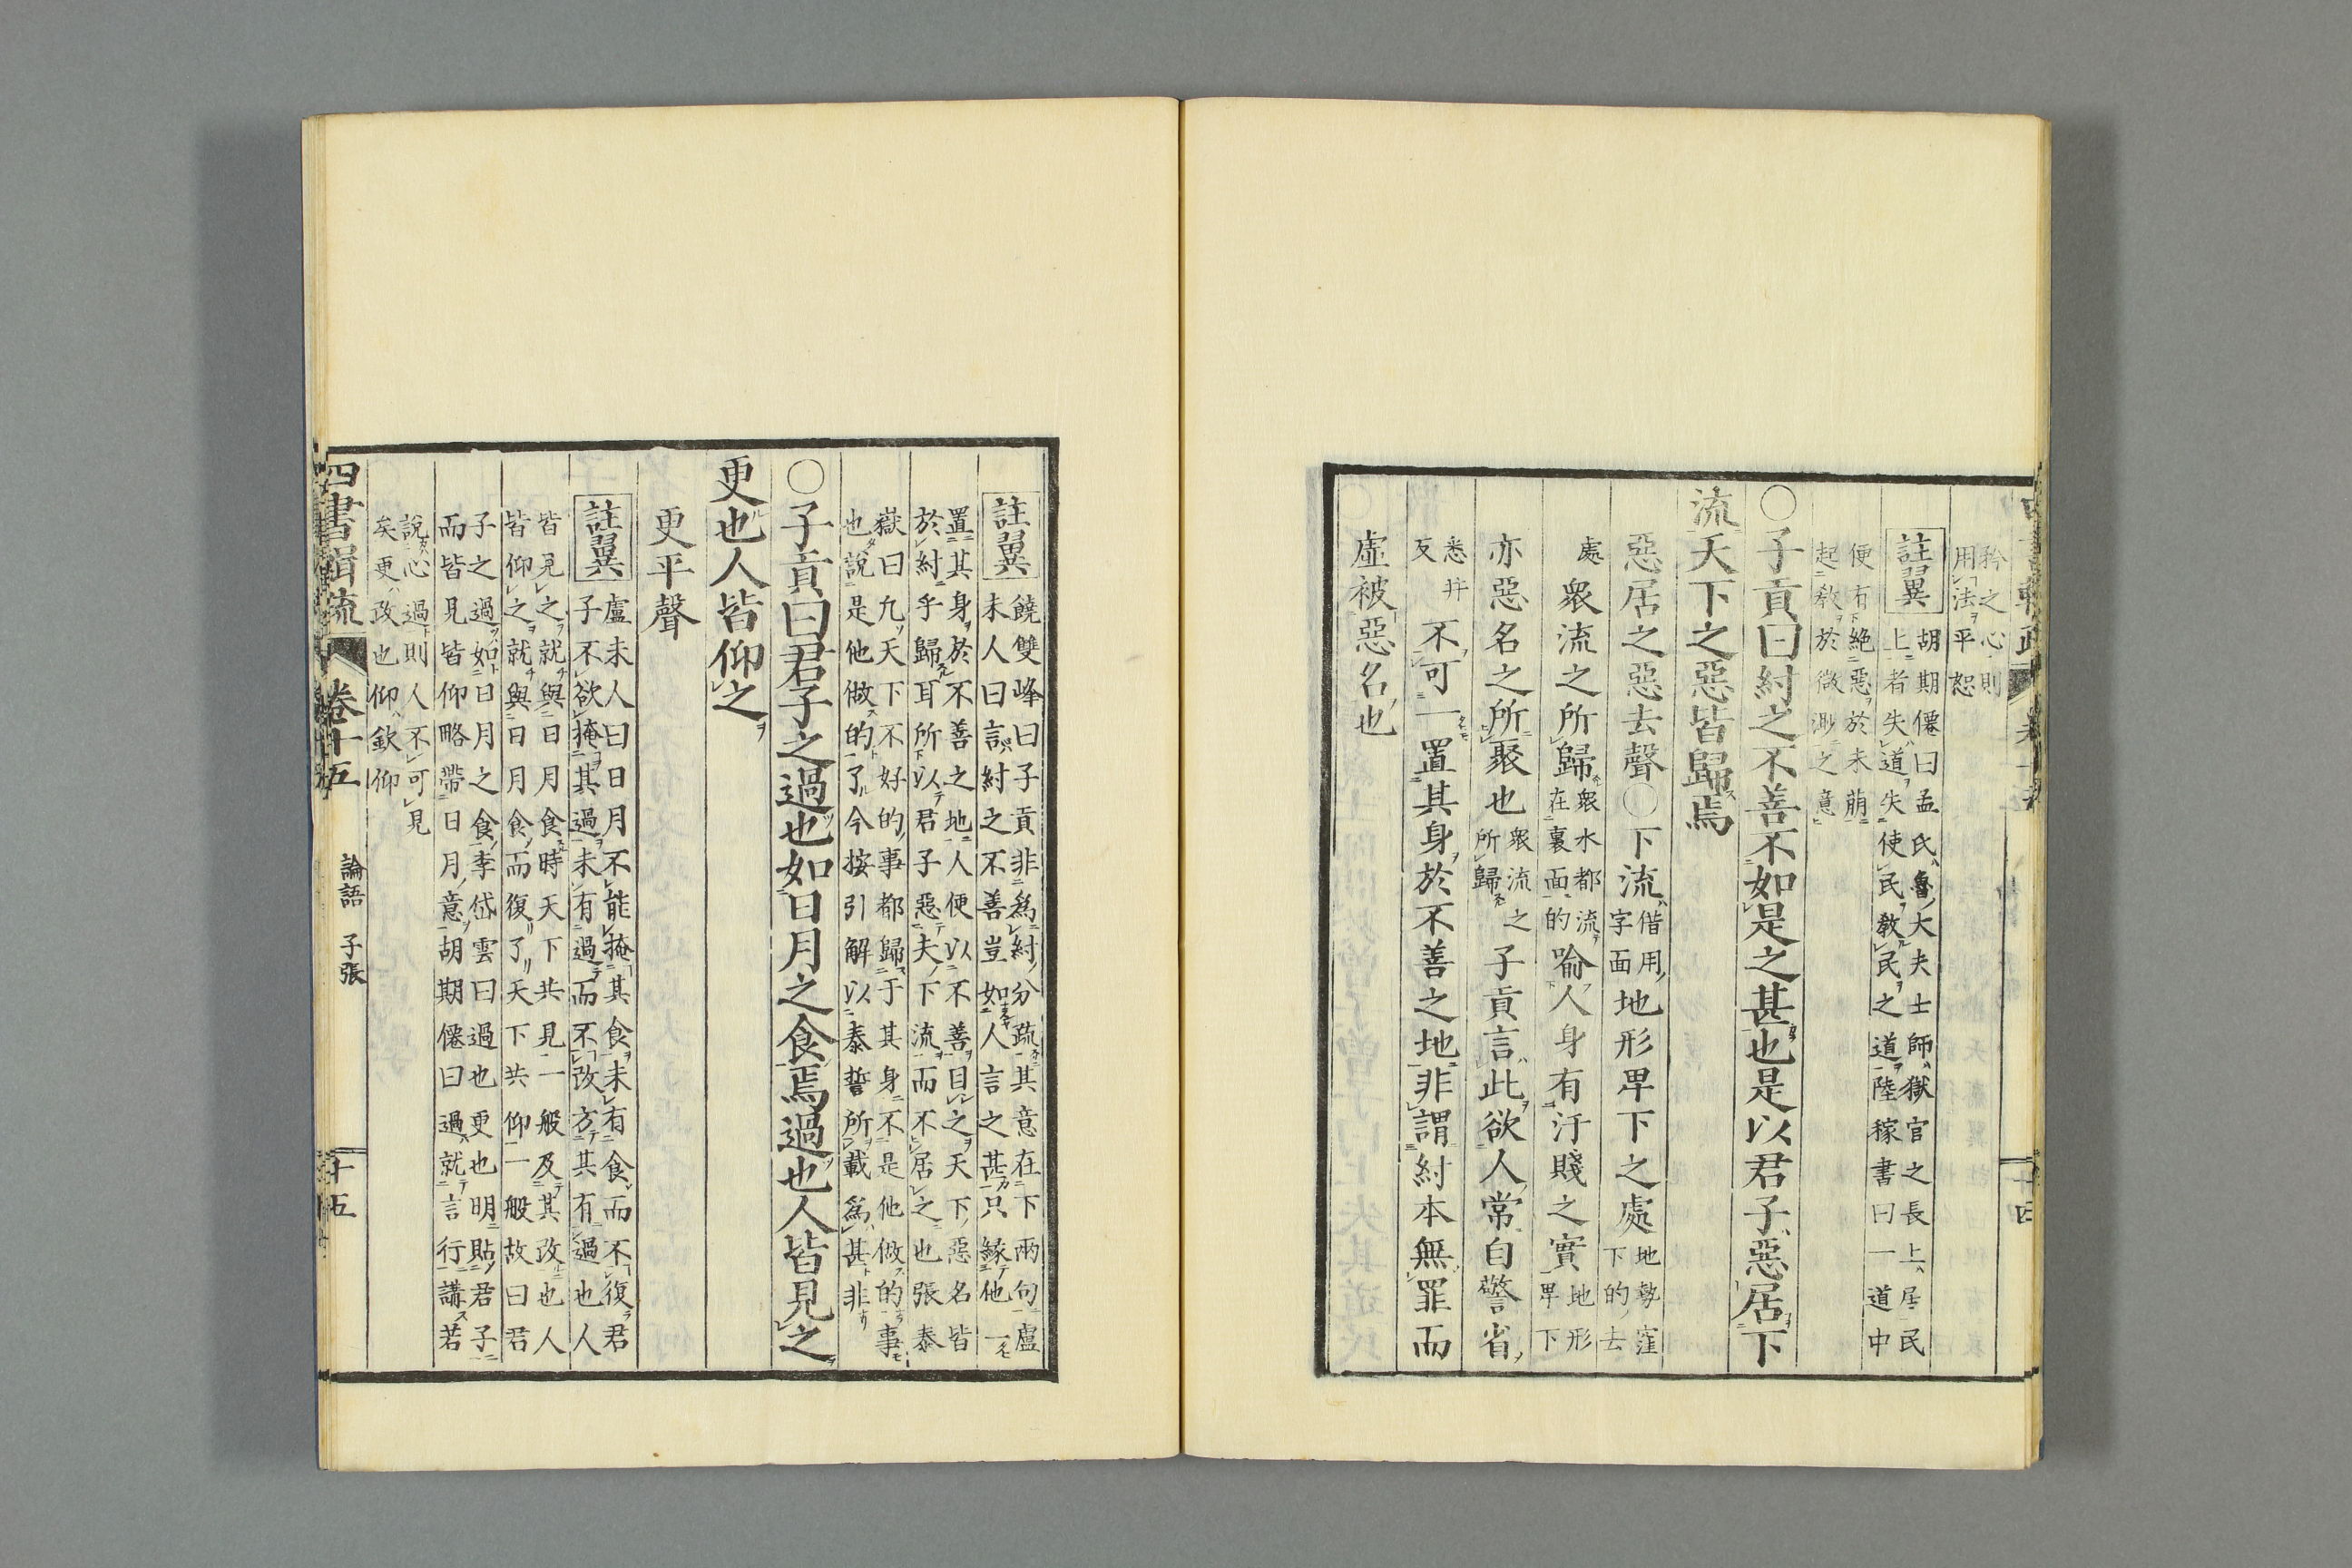 矜之心則
用法平恕
註翼
胡期僊曰孟氏魯大夫士師獄官之長上居民
上者失道失使民教民之道陸稼書曰一道中
便有絶惡於未萠
起教於微渺之意
○子貢曰紂之不善不如是之甚也是以君子惡居下
流天下之惡皆歸焉
惡居之惡去聲○下流
借用
字面
地形卑下之處
地勢窪
下的去
處
衆流之所歸
衆水都流
在裏面的
喻人身有汙賤之實
地形
卑下
亦惡名之所聚也
衆流之
所歸
子貢言此欲人常自警省
悉井
反
不可一置其身於不善之地非謂紂本無罪而
虛被惡名也
註翼
饒雙峰曰子貢非爲紂分疏其意在下兩句盧
未人曰言紂之不善豈如人言之甚只緣他一
置其身於不善之地人便以不善目之天下惡名皆
於紂乎歸耳所以君子惡夫下流而不居之也張泰
嶽曰凢天下不好的事都歸于其身不是他做的事
也說是他做的了今按引解以泰誓所載爲甚非
○子貢曰君子之過也如日月之食焉過也人皆見之
更也人皆仰之
更平聲
註翼
盧未人曰日月不能掩其食未有食而不復君
子不欲掩其過未有過而不改方其有過也人
皆見之就與日月食時天下共見一般及其改也人
皆仰之就與日月食而復了天下共仰一般故曰君
子之過如日月之食李岱雲曰過也更也明貼君子
而皆見皆仰略帶日月意胡期僊曰過就言行講若
說心過則人不可見
矣更改也仰欽仰
四書緝疏
卷十五
論語 子張
十五